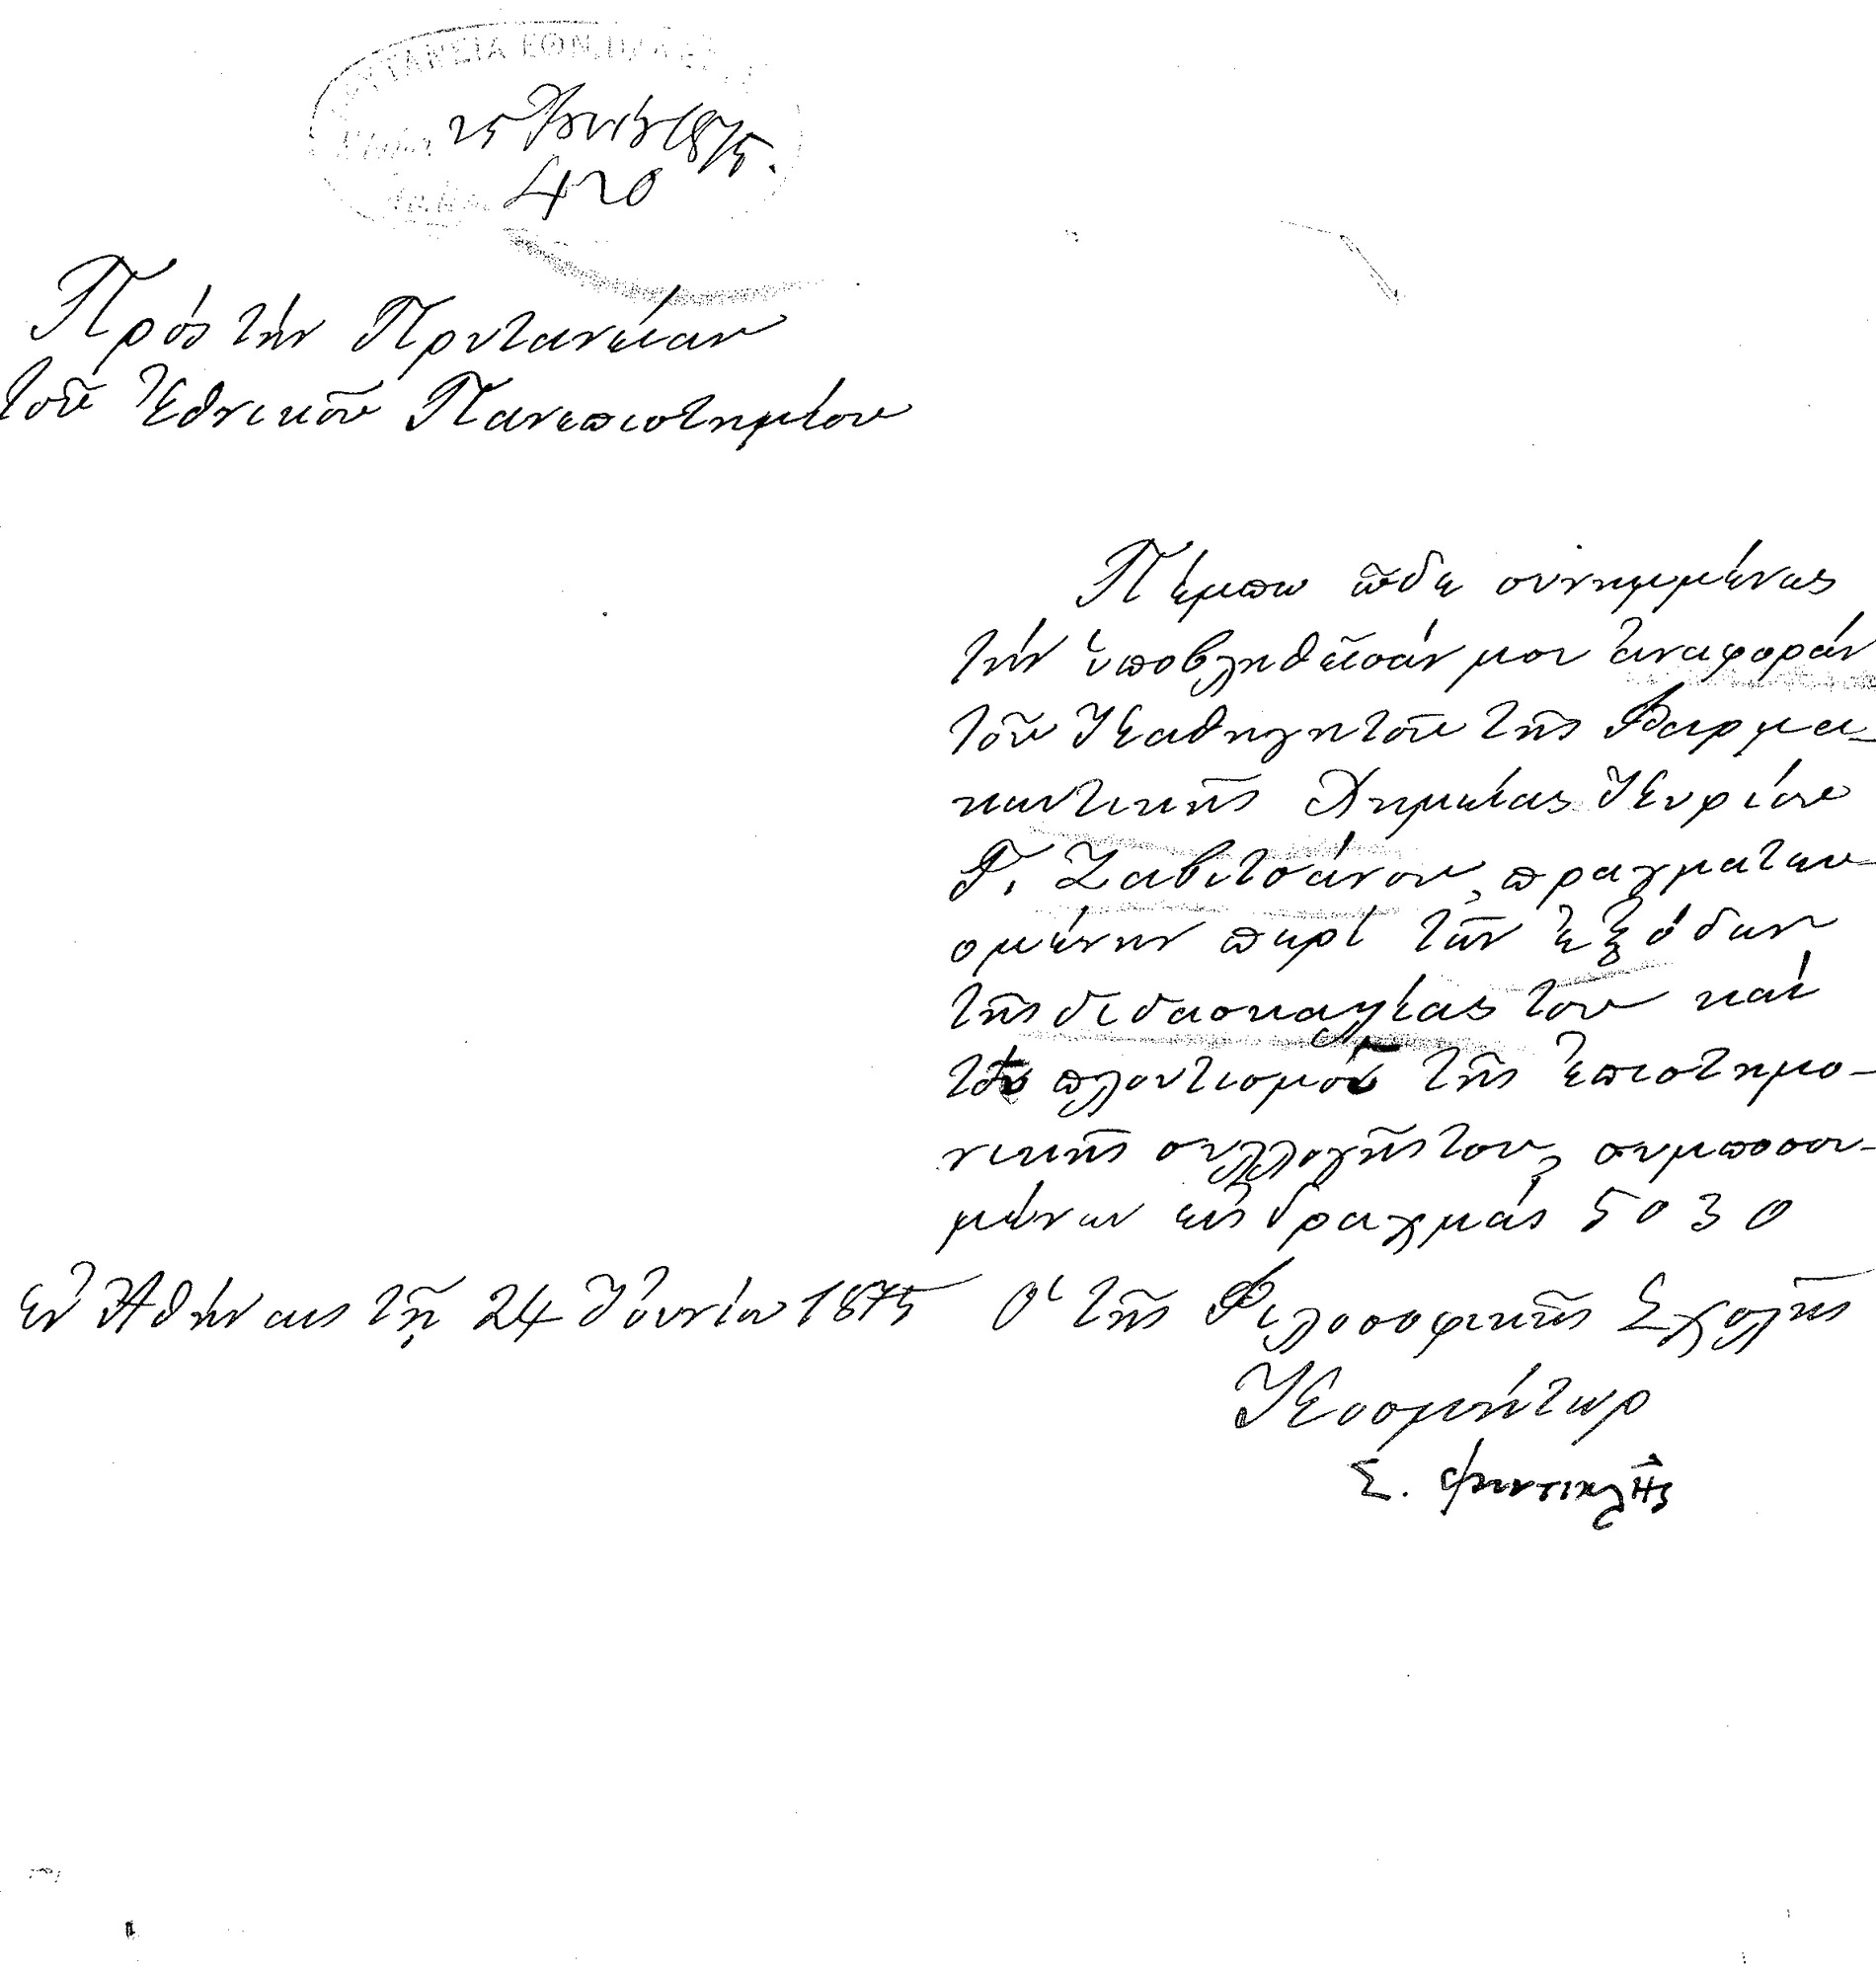 ΠΡΥΤΑΝΕΙΑ ΕΘΝ.
25 Ἰουνίου 1875.
420
Πρός τήν Πρυτανείαν
τοῦ Ἐθνικοῦ Πανεπιστημίου
Πέμπω ὧδε συνημμένως
τήν ὑποβληθεῖσάν μοι ἀναφοράν
τοῦ Καθηγητοῦ τῆς Φαρμα-
κευτικῆς Χημείας Κυρίου
Γ. Ζαβιτσάνου, πραγματευ-
ομένην περί τῶν ἐξόδων
τῆς διδασκαλίας του καί
τοῦ πλουτισμοῦ τῆς ἐπιστημο-
νικῆς συλλογῆς του, συμποσου-
μένων εἰς δραχμάς 5030
ἐν Ἀθήναις τῇ 24 Ἰουνίου 1875
Ὁ τῆς Φιλοσοφικῆς Σχολῆς
Κοσμήτωρ
Σ. Φιντικλῆς